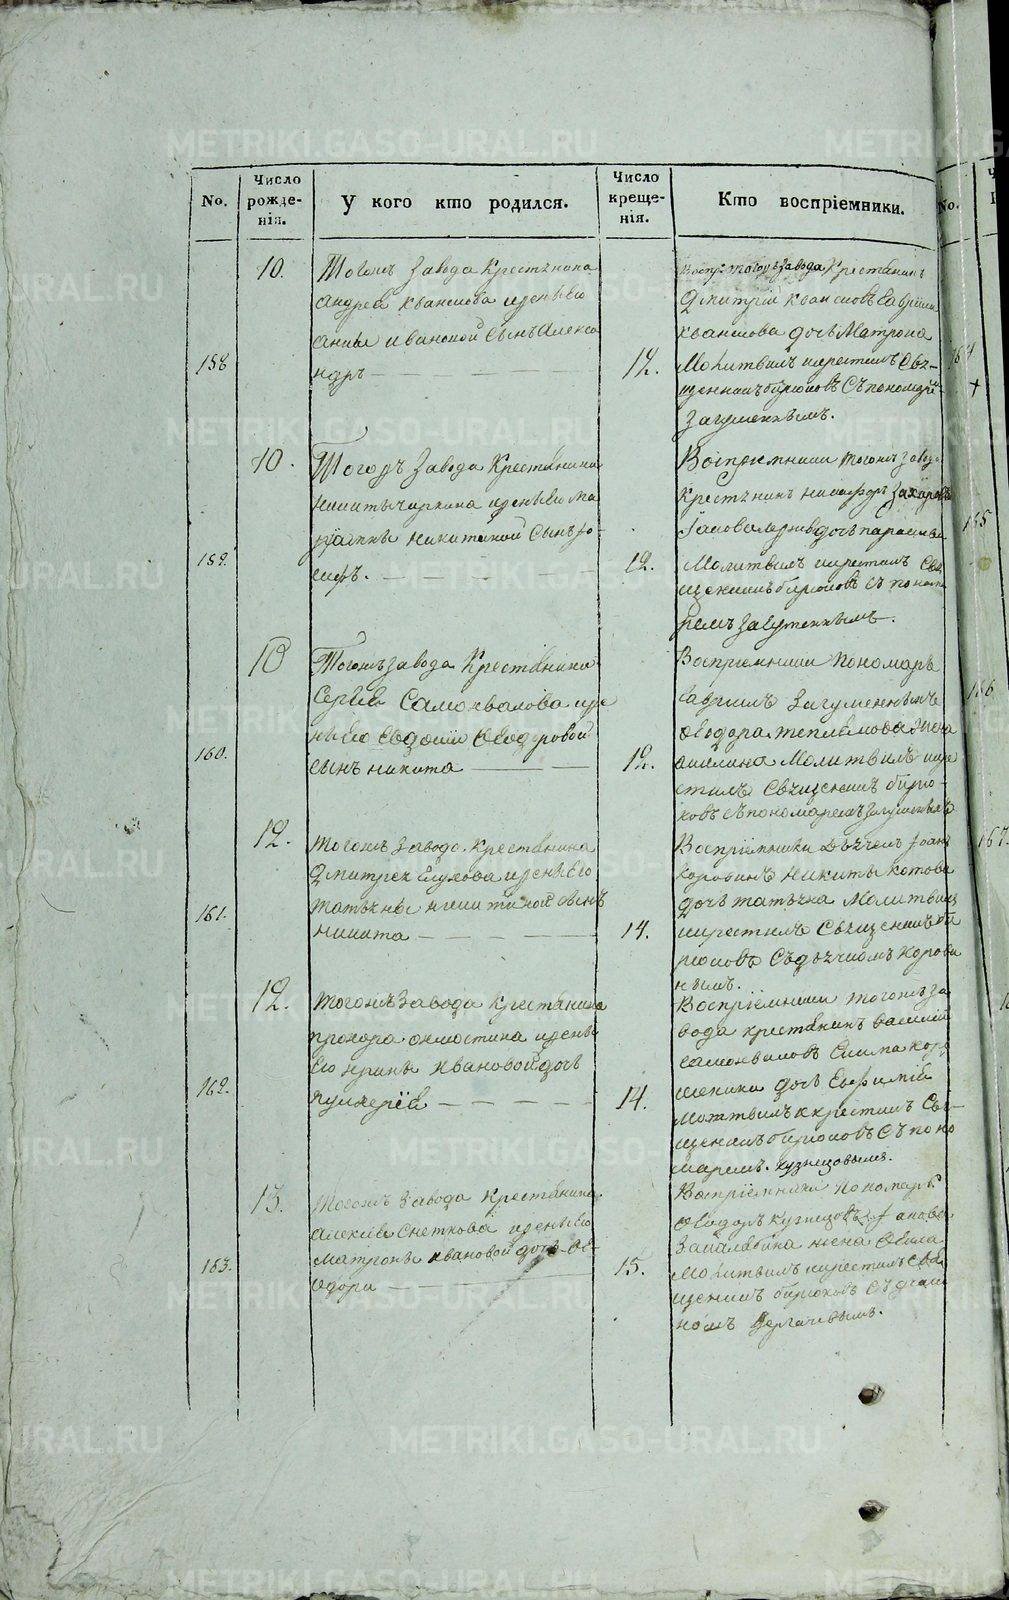 No.
Число
рожде-
нія.
У кого кто родился.
Число
креще-
нія.
Кто воспріемники.
No.
158
10.
Тогожъ завода Крестянина
андрея квашнова и жены Его
анны ивановой Сынъ Алекса
ндръ
12.
Воспр: тогожъ завода Крестянинъ
Дмитрій квашновъ гаврилы
квашнова дочь Матрона
Молитвилъ икрестилъ Свя-
щенникъ бирюковъ Съ пономарем
Загуменнымъ.
159.
10.
Тогожъ Завода Крестянина
никиты чиркина и жены Его ма
никитиной Сынъ Ио-
сифъ.
12.
Воспріемники тогожъ завода
Крестянинъ никифоръ захаровъ
дочь параскева
Молитвилъ икрестилъ Свя
щенникъ бирюковъ Съ понома
ремъ Загуменнымъ.
160.
10
Тогожъ завода Крестянина
Сергея Самохвалова и же
ны Его Евдокіи Ѳеодоровой
сынъ никита
12.
Воспріемники пономарь
гаврилъ Загуменныхъ
Ѳеодора теплякова жена
акилина Молитвилъ икре
стилъ Священникъ бирю-
ковъ Съ пономаремъ Загуменнымъ
161.
12.
тогожъ завода крестянина
Дмитрея Глухова и жены Его
татьяны никитиной сынъ
никита
14.
Воспріемники дьячекъ Іоаннъ
коровинъ никиты котова
дочь татьяна Молитвилъ
икрестилъ Священникъ би
рюковъ Съ дьячкомъ корови
нымъ.
162.
12.
тогожъ завода крестянина
прохора и жены
Его ирины ивановой дочь
пулхерія
14.
Воспріемники тогожъ за
вода крестянинъ василій
самохваловъ
дочь Евфимія
молитвилъ и крестилъ Свя-
щенникъ бирюковъ Съ поно
маремъ. кузнецовымъ.
163.
13.
тогожъ завода крестянина
алексея Снеткова и жены Его
матроны ивановой дочь Ѳе-
одора
15.
Воспріемники пономарь
Ѳеодоръ кузнецовъ
жена Ѳекла
Молитвилъ икрестилъ Свя
щенникъ бирюковъ Съ диако
номъ Дергачевымъ.
164
165
166
167.
METRIKI.GASO-URAL.RU